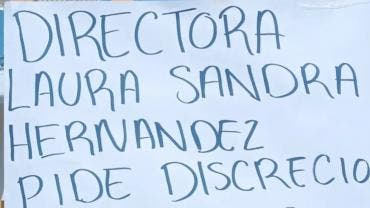 DIRECTORA
LAURA SANDRA
HERNANDEZ
PIDE DISCRECIO